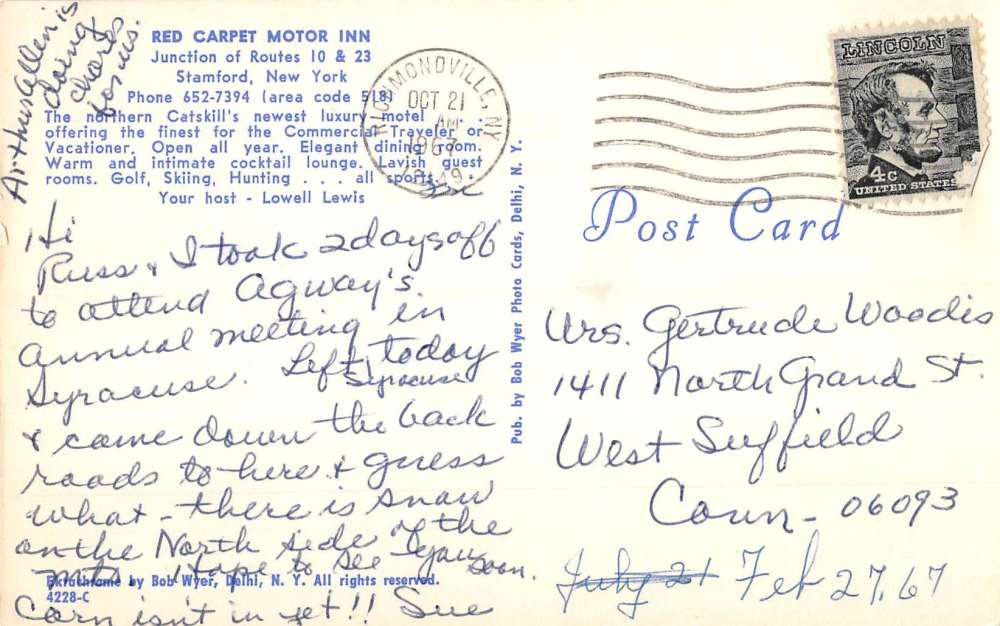 Arthur Allen is
doing
chores
for us.
RED CARPET MOTOR INN
Junction of Routes 10 & 23
Stamford, New York
Phone 652-7394 (area code
The northern Catskill's newest luxury motel . .
offering the finest for the Commercial Traveler or
Vacationer. Open all year. Elegant dining room.
Warm and intimate cocktail lounge. Lavish guest
rooms. Golf, Skiing, Hunting . . . all sports.
Your host - Lowell Lewis
RICHMONDVILLE, N.Y.
OCT 21
AM
LINCOLN
4c
UNITED STATES
Post Card
Hi
Russ & I took 2 days off
to attend Agway's
annual meeting in
Syracuse. Left today
Syracuse
& came down the back
roads to here & guess
what - there is snow
on the North side of the
mts. Hope to see you
soon.
Corn isn't in yet!! Sue
Ektachrome by Bob Wyer, Delhi, N. Y. All rights reserved.
4228-C
Pub. by Bob Wyer Photo Cards, Delhi, N. Y.
Mrs. Gertrude Woodis
1411 North Grand St.
West Suffield
Conn - 06093
July 21 Feb 27, 67